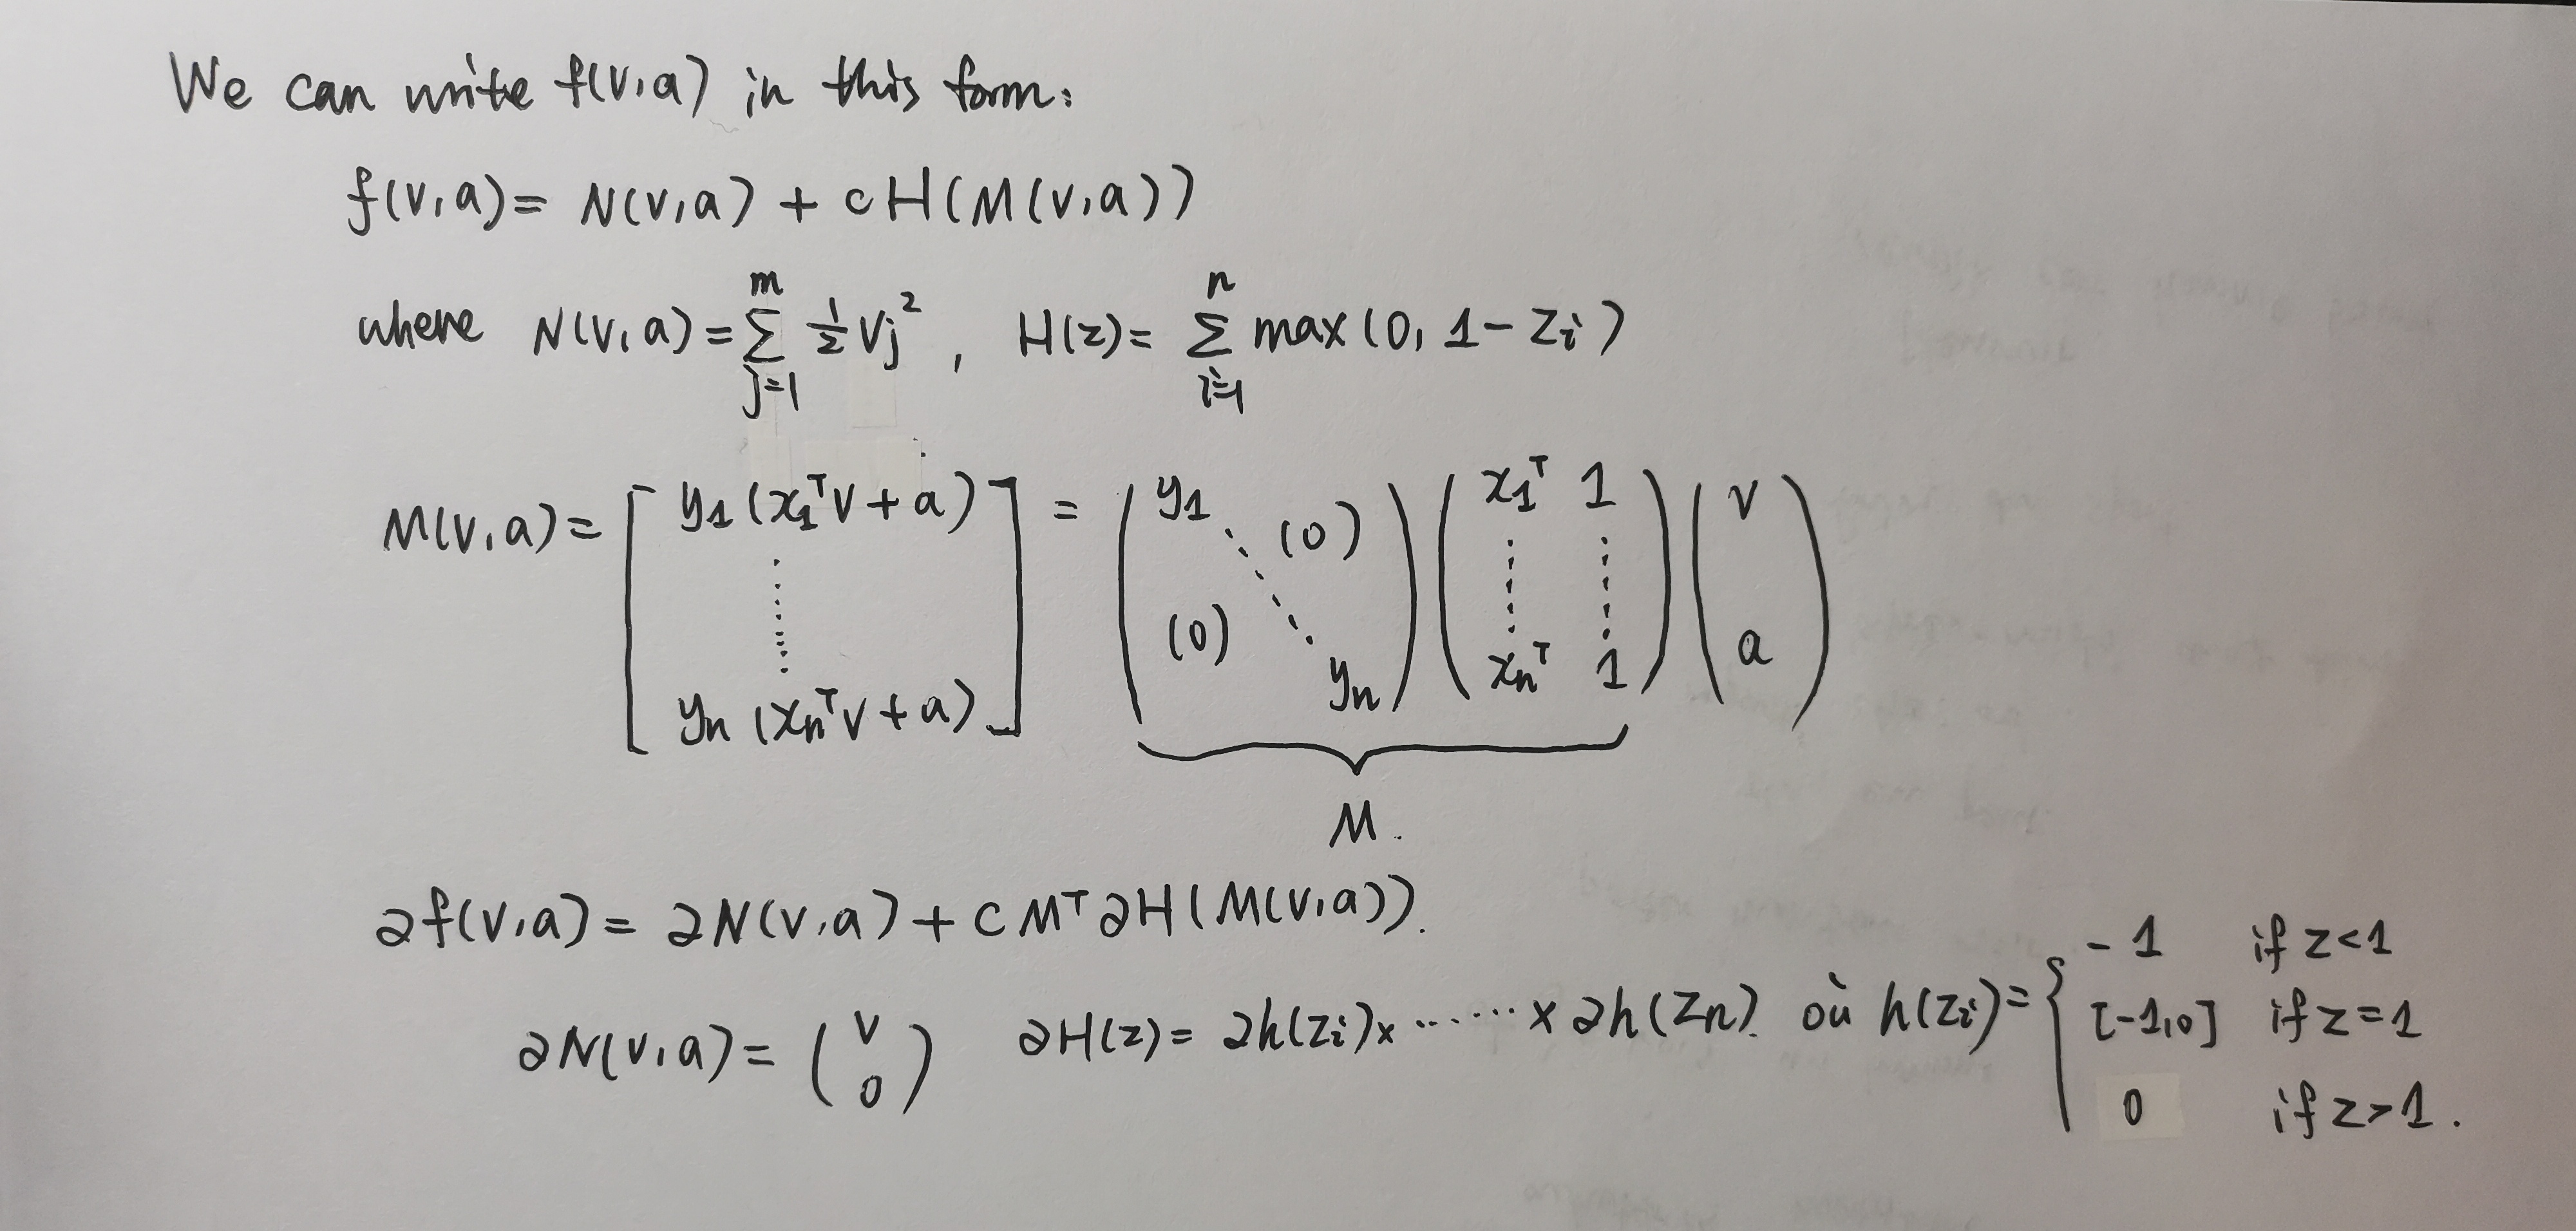 We can write f(v,a) in this form:
f(v,a) = N(v,a) + cH(M(v,a))
where N(v,a) = \sum_{j=1}^{m} \frac{1}{2} v_j^2 , H(z) = \sum_{i=1}^{n} max(0, 1-z_i)
M(v,a) = \begin{bmatrix} y_1(x_1^T v + a) \\ \vdots \\ y_n(x_n^T v + a) \end{bmatrix} = \begin{pmatrix} y_1 & & (0) \\ & \ddots & \\ (0) & & y_n \end{pmatrix} \begin{pmatrix} x_1^T & 1 \\ \vdots & \vdots \\ x_n^T & 1 \end{pmatrix} \begin{pmatrix} v \\ a \end{pmatrix}
M.
∂f(v,a) = ∂N(v,a) + C M^T ∂H(M(v,a)).
∂N(v,a) = \begin{pmatrix} v \\ 0 \end{pmatrix} ∂H(z) = ∂h(z_i) × ...... × ∂h(z_n). où h(z_i) = \begin{cases} -1 & if z<1 \\ [-1,0] & if z=1 \\ 0 & if z>1. \end{cases}